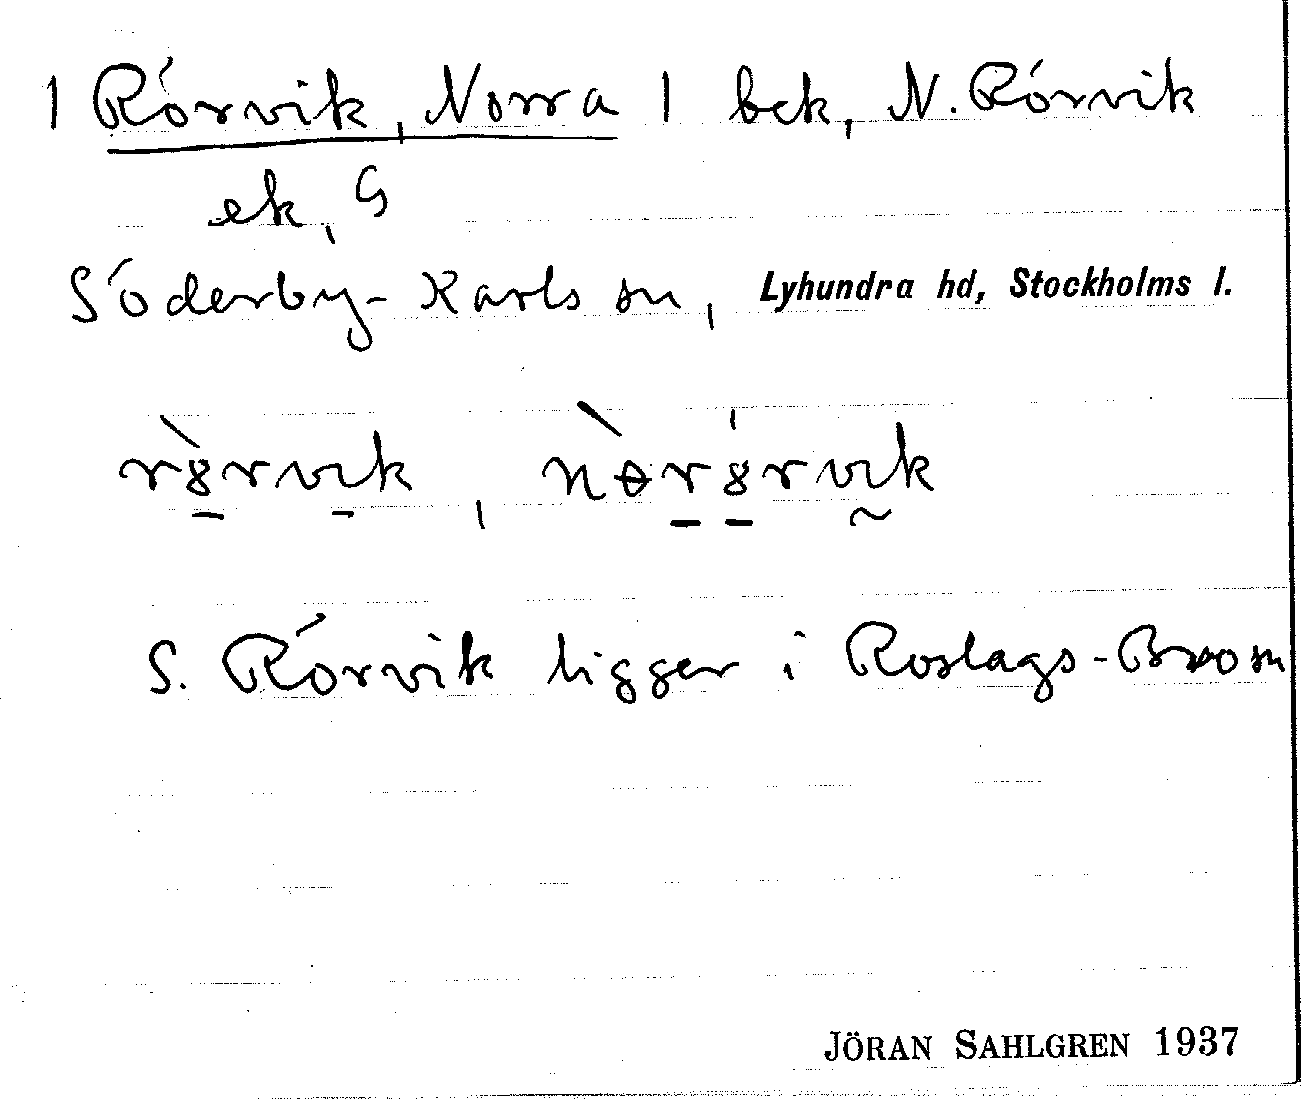 1 Rörvik, Norra 1 bek, N. Rörvik
ek, G
Söderby-Karls sn, Lyhundra hd, Stockholms l.
rȣ̀rvik, nɵ̀rȣ́rvik
S. Rörvik ligger i Roslags-Bro sn
JÖRAN SAHLGREN 1937